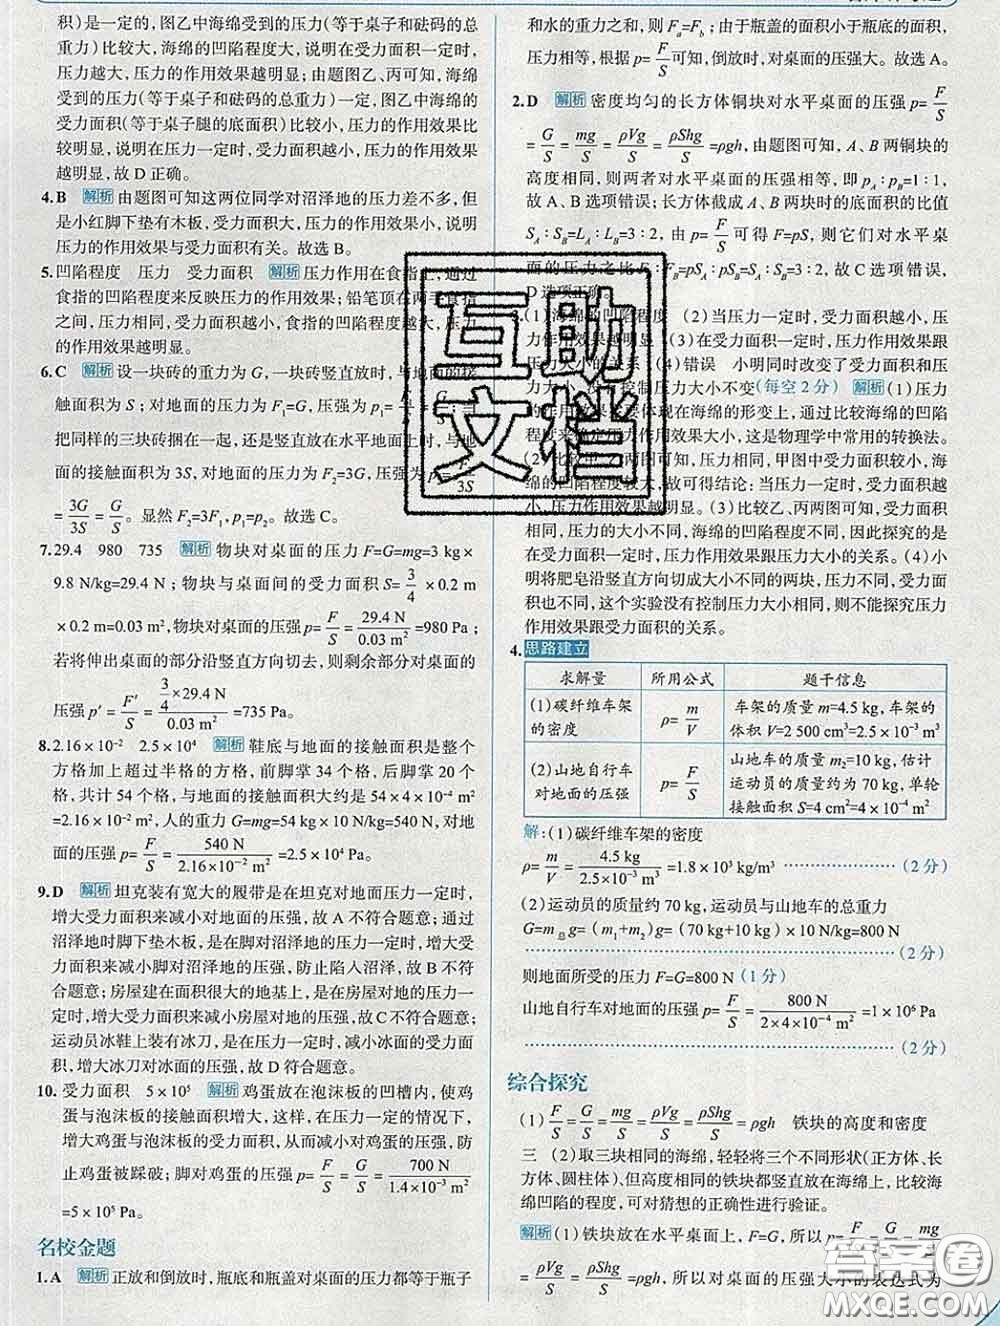 积）是一定的，图甲中海绵受到的压力（等于桌子的
重力）比较小，海绵的凹陷程度小；图乙中海绵受到的压力（等于桌子和砝码的总
重力）比较大，海绵的凹陷程度大，说明在受力面积一定时，
压力越大，压力的作用效果越明显；由题图乙、丙可知，海绵
受到的压力（等于桌子和砝码的总重力）一定，图乙中海绵的
受力面积（等于桌子腿的底面积）比较小，压力的作用效果比
较明显，说明在压力一定时，受力面积越小，压力的作用效果
越明显，故 D 正确。
4.B 解析 由题图可知这两位同学对沼泽地的压力差不多，但
是小红脚下垫有木板，受力面积大，压力的作用效果小，说明
压力的作用效果与受力面积有关。故选 B。
5.凹陷程度 压力 受力面积 解析 压力作用在食指上，通过
食指的凹陷程度来反映压力的作用效果；铅笔顶在两手食指
之间，压力相同，受力面积越小，食指的凹陷程度越大，压力
的作用效果越明显。
6.C 解析 设一块砖的重力为 G，一块砖竖直放时，与地面的接
触面积为 S；对地面的压力为 F₁=G，压强为 p₁=F₁/S=G/S；当
把同样的三块砖捆在一起，还是竖直放在水平地面上时，与地
面的接触面积为 3S，对地面的压力为 F₂=3G，压强为 p₂=F₂/3S
=3G/3S=G/S。显然 F₂=3F₁，p₁=p₂。故选 C。
7.29.4 980 735 解析 物块对桌面的压力 F=G=mg=3 kg×
9.8 N/kg=29.4 N；物块与桌面间的受力面积 S=3/4×0.2 m
×0.2 m=0.03 m²，物块对桌面的压强 p=F/S=29.4 N/0.03 m²=980 Pa；
若将伸出桌面的部分沿竖直方向切去，则剩余部分对桌面的
压强 p′=F′/S=(3/4×29.4 N)/0.03 m²=735 Pa。
8.2.16×10⁻² 2.5×10⁴ 解析 鞋底与地面的接触面积是整个
方格加上超过半格的方格，前脚掌 34 个格，后脚掌 20 个
格，共计 54 个格，与地面的接触面积大约是 54×4×10⁻⁴ m²
=2.16×10⁻² m²，人的重力 G=mg=54 kg×10 N/kg=540 N，对地
面的压强 p=F/S=540 N/2.16×10⁻² m²=2.5×10⁴ Pa。
9.D 解析 坦克装有宽大的履带是在坦克对地面压力一定时，
增大受力面积来减小对地面的压强，故 A 不符合题意；通过
沼泽地时脚下垫木板，是在脚对沼泽地的压力一定时，增大受
力面积来减小对沼泽地的压强，防止陷入沼泽，故 B 不符合
题意；房屋建在面积很大的地基上，是在房屋对地的压力一
定时，增大受力面积来减小房屋对地的压强，故 C 不符合题意；
运动员冰鞋上装有冰刀，是在压力一定时，减小受力面
积，增大冰刀对冰面的压强，故 D 符合题意。
10. 受力面积 5×10⁵ 解析 鸡蛋放在泡沫板的凹槽内，使鸡
蛋与泡沫板的接触面积增大，这样，在压力一定的情况下，
增大鸡蛋与泡沫板的受力面积，从而减小对鸡蛋的压强，防
止鸡蛋被踩破；脚对鸡蛋的压强 p=F/S=G/S=700 N/1.4×10⁻³ m²
=5×10⁵ Pa。
名校金题
1.A 解析 正放和倒放时，瓶底和瓶盖对桌面的压力都等于瓶子
和水的重力之和，则 Fₐ=F_b；由于瓶盖的面积小于瓶底的面积，
压力相等，根据 p=F/S可知，倒放时，对桌面的压强大。故选 A。
2.D 解析 密度均匀的长方体铜块对水平桌面的压强 p=F/S
=G/S=mg/S=ρVg/S=ρShg/S=ρgh，由题图可知，A、B 两铜块的
高度相同，则两者对水平桌面的压强相等，即 p_A∶p_B=1∶1，
故 A、B 选项错误；长方体截成 A、B 两块时的底面积的比值
S_A∶S_B=L_A∶L_B=3∶2，由 p=F/S可得 F=pS，则它们对水平桌
面的压力之比 F_A∶F_B=p_A S_A∶p_B S_B=3∶2，故 C 选项错误，
D 选项正确。
3.(1)海绵的凹陷程度 (2)当压力一定时，受力面积越小，
压力作用效果越明显 (3)在受力面积一定时，压力作用效果跟
压力大小的关系 (4)错误 小明同时改变了受力面积和压
力大小，没有控制压力大小不变（每空 2 分） 解析 (1)压力
的作用效果主要体现在海绵的形变上，通过比较海绵的凹陷
程度来确定压力作用效果大小，这是物理学中常用的转换法。
(2)比较甲、乙两图可知，压力相同，甲图中受力面积小，海
绵的凹陷程度较大，故可得结论：当压力一定时，受力面积越
小，压力作用效果越明显。(3)比较乙、丙两图可知，受力面积
相同，压力的大小不同，海绵的凹陷程度不同，因此探究的是
在受力面积一定时，压力作用效果跟压力大小的关系。(4)小
明将肥皂沿竖直方向切成大小不同的两块，压力不同，受力面
积也不同，这个实验没有控制压力大小相同，则不能探究压力
作用效果跟受力面积的关系。
4.思路建立
求解量 所用公式 题干信息
(1)碳纤维车架的密度 ρ=m/V 车架的质量 m=4.5 kg，车架的体积 V=2 500 cm³=2.5×10⁻³ m³
(2)山地自行车对地面的压强 p=F/S 山地车的质量 m₂=10 kg，估计运动员的质量约为 70 kg，单轮接触面积 S=4 cm²=4×10⁻⁴ m²
解：(1)碳纤维车架的密度
ρ=m/V=4.5 kg/2.5×10⁻³ m³=1.8×10³ kg/m³ （2 分）
(2)运动员的质量约 70 kg，运动员与山地车的总重力
G=m总g=(m₁+m₂)g=(70 kg+10 kg)×10 N/kg=800 N
（2 分）
则地面所受的压力 F=G=800 N（1 分）
山地自行车对地面的压强 p=F/S=800 N/2×4×10⁻⁴ m²=1×10⁶ Pa
（2 分）
综合探究
(1)F/S=G/S=mg/S=ρVg/S=ρShg/S=ρgh 铁块的高度和密度
三 (2)取三块相同的海绵，轻轻将三个不同形状（正方体、长
方体、圆柱体），但高度相同的铁块都竖直放在海绵上，比较海
绵凹陷的程度，可对猜想的正确性进行验证。
解析 (1)铁块放在水平桌面上，F=G，所以 p=F/S=G/S=mg/S
=ρVg/S=ρShg/S=ρgh，所以对桌面的压强大小的表达式为
互助
文档
答案圈
MXQE.COM